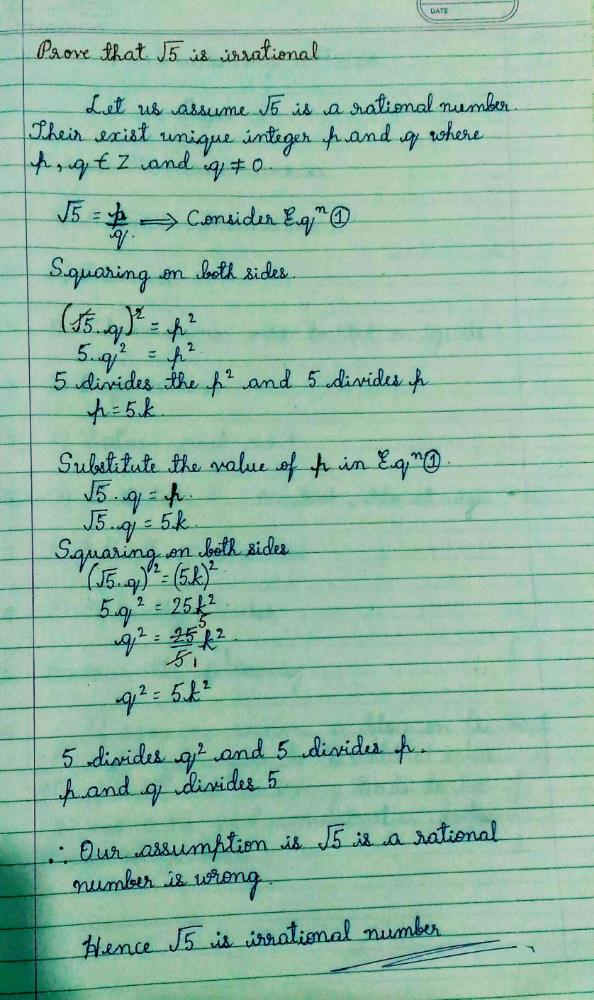 DATE
Prove that √5 is irrational
Let us assume √5 is a rational number.
Their exist unique integer p and q where
p, q ∈ Z and q ≠ 0.
√5 = p/q ⟹ Consider Eqⁿ ①
Squaring on both sides.
(√5.q)² = p²
5.q² = p²
5 divides the p² and 5 divides p
p = 5k
Substitute the value of p in Eqⁿ①.
√5.q = p.
√5.q = 5k
Squaring on both sides
(√5.q)² = (5k)²
5q² = 25k²
q² = 25/5 k² 5 1
q² = 5k²
5 divides q² and 5 divides p.
p and q divides 5
∴ Our assumption is √5 is a rational
number is wrong.
Hence √5 is irrational number